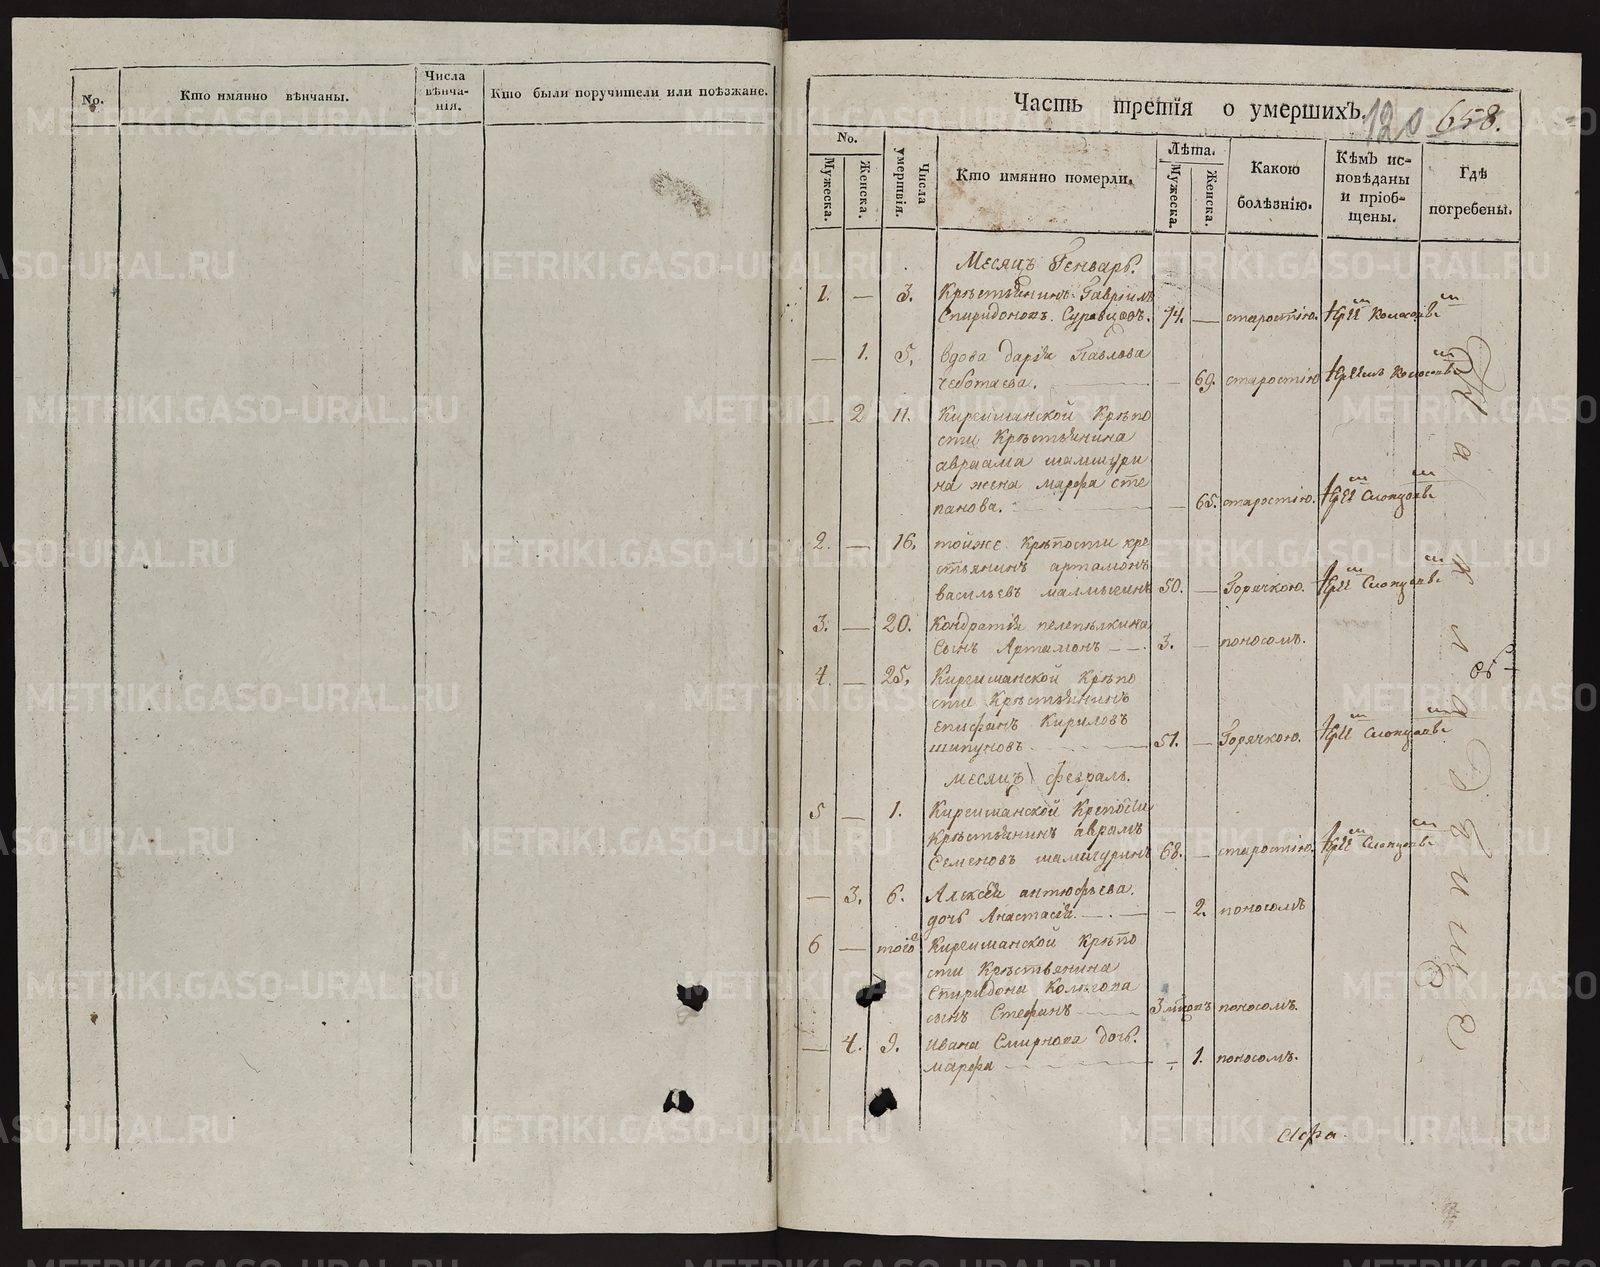 No.
Кто имянно вѣнчаны.
Числа
вѣнча-
нія.
Кто были поручители или поѣзжане.
Часть третія о умершихъ.
120
658.
No.
Мужеска.
Женска.
Числа
умертвія.
Кто имянно померли.
Лѣта.
Мужеска.
Женска.
Какою
болѣзнію.
Кѣмъ ис-
повѣданы
и пріоб-
щены.
Гдѣ
погребены.
Месяцъ Генварь.
1. — 3. Крѣстьянинъ Гавріилъ
Спиридоновъ Суравцовъ. 74. — старостію.
— 1. 5. вдова дарія Павлова
чеботаева. — 69. старостію
— 2 11. Киргишанской Крѣпо
сти Крѣстьянина
авраама шамшури
на жена марфа сте
панова. — 65. старостію.
2. — 16. тойже крѣпости кре
стьянинъ артамонъ
васильевъ малмыгинъ 50. — Горячкою.
3. — 20. Кондратія
сынъ Артамонъ — 3. — поносомъ.
4. — 25. Киргишанской Крѣпо
сти Крѣстьянинъ
епифанъ Кириловъ
шипуновъ 51. — Горячкою.
месяцъ февраль.
5 — 1. Киргишанской Крепости
Крѣстьянинъ аврамъ
Семеновъ шамшуринъ 68. — старостію.
— 3. 6. Алексѣя антюфьева
дочь Анастасія. — 2. поносомъ
6 — того Киргишанской крѣпо
сти Крѣствянина
спиридона
сынъ Стефанъ 3 поносомъ.
— 4. 9. ивана Смирнова дочь.
марфа — 1. поносомъ.
METRIKI.GASO-URAL.RU